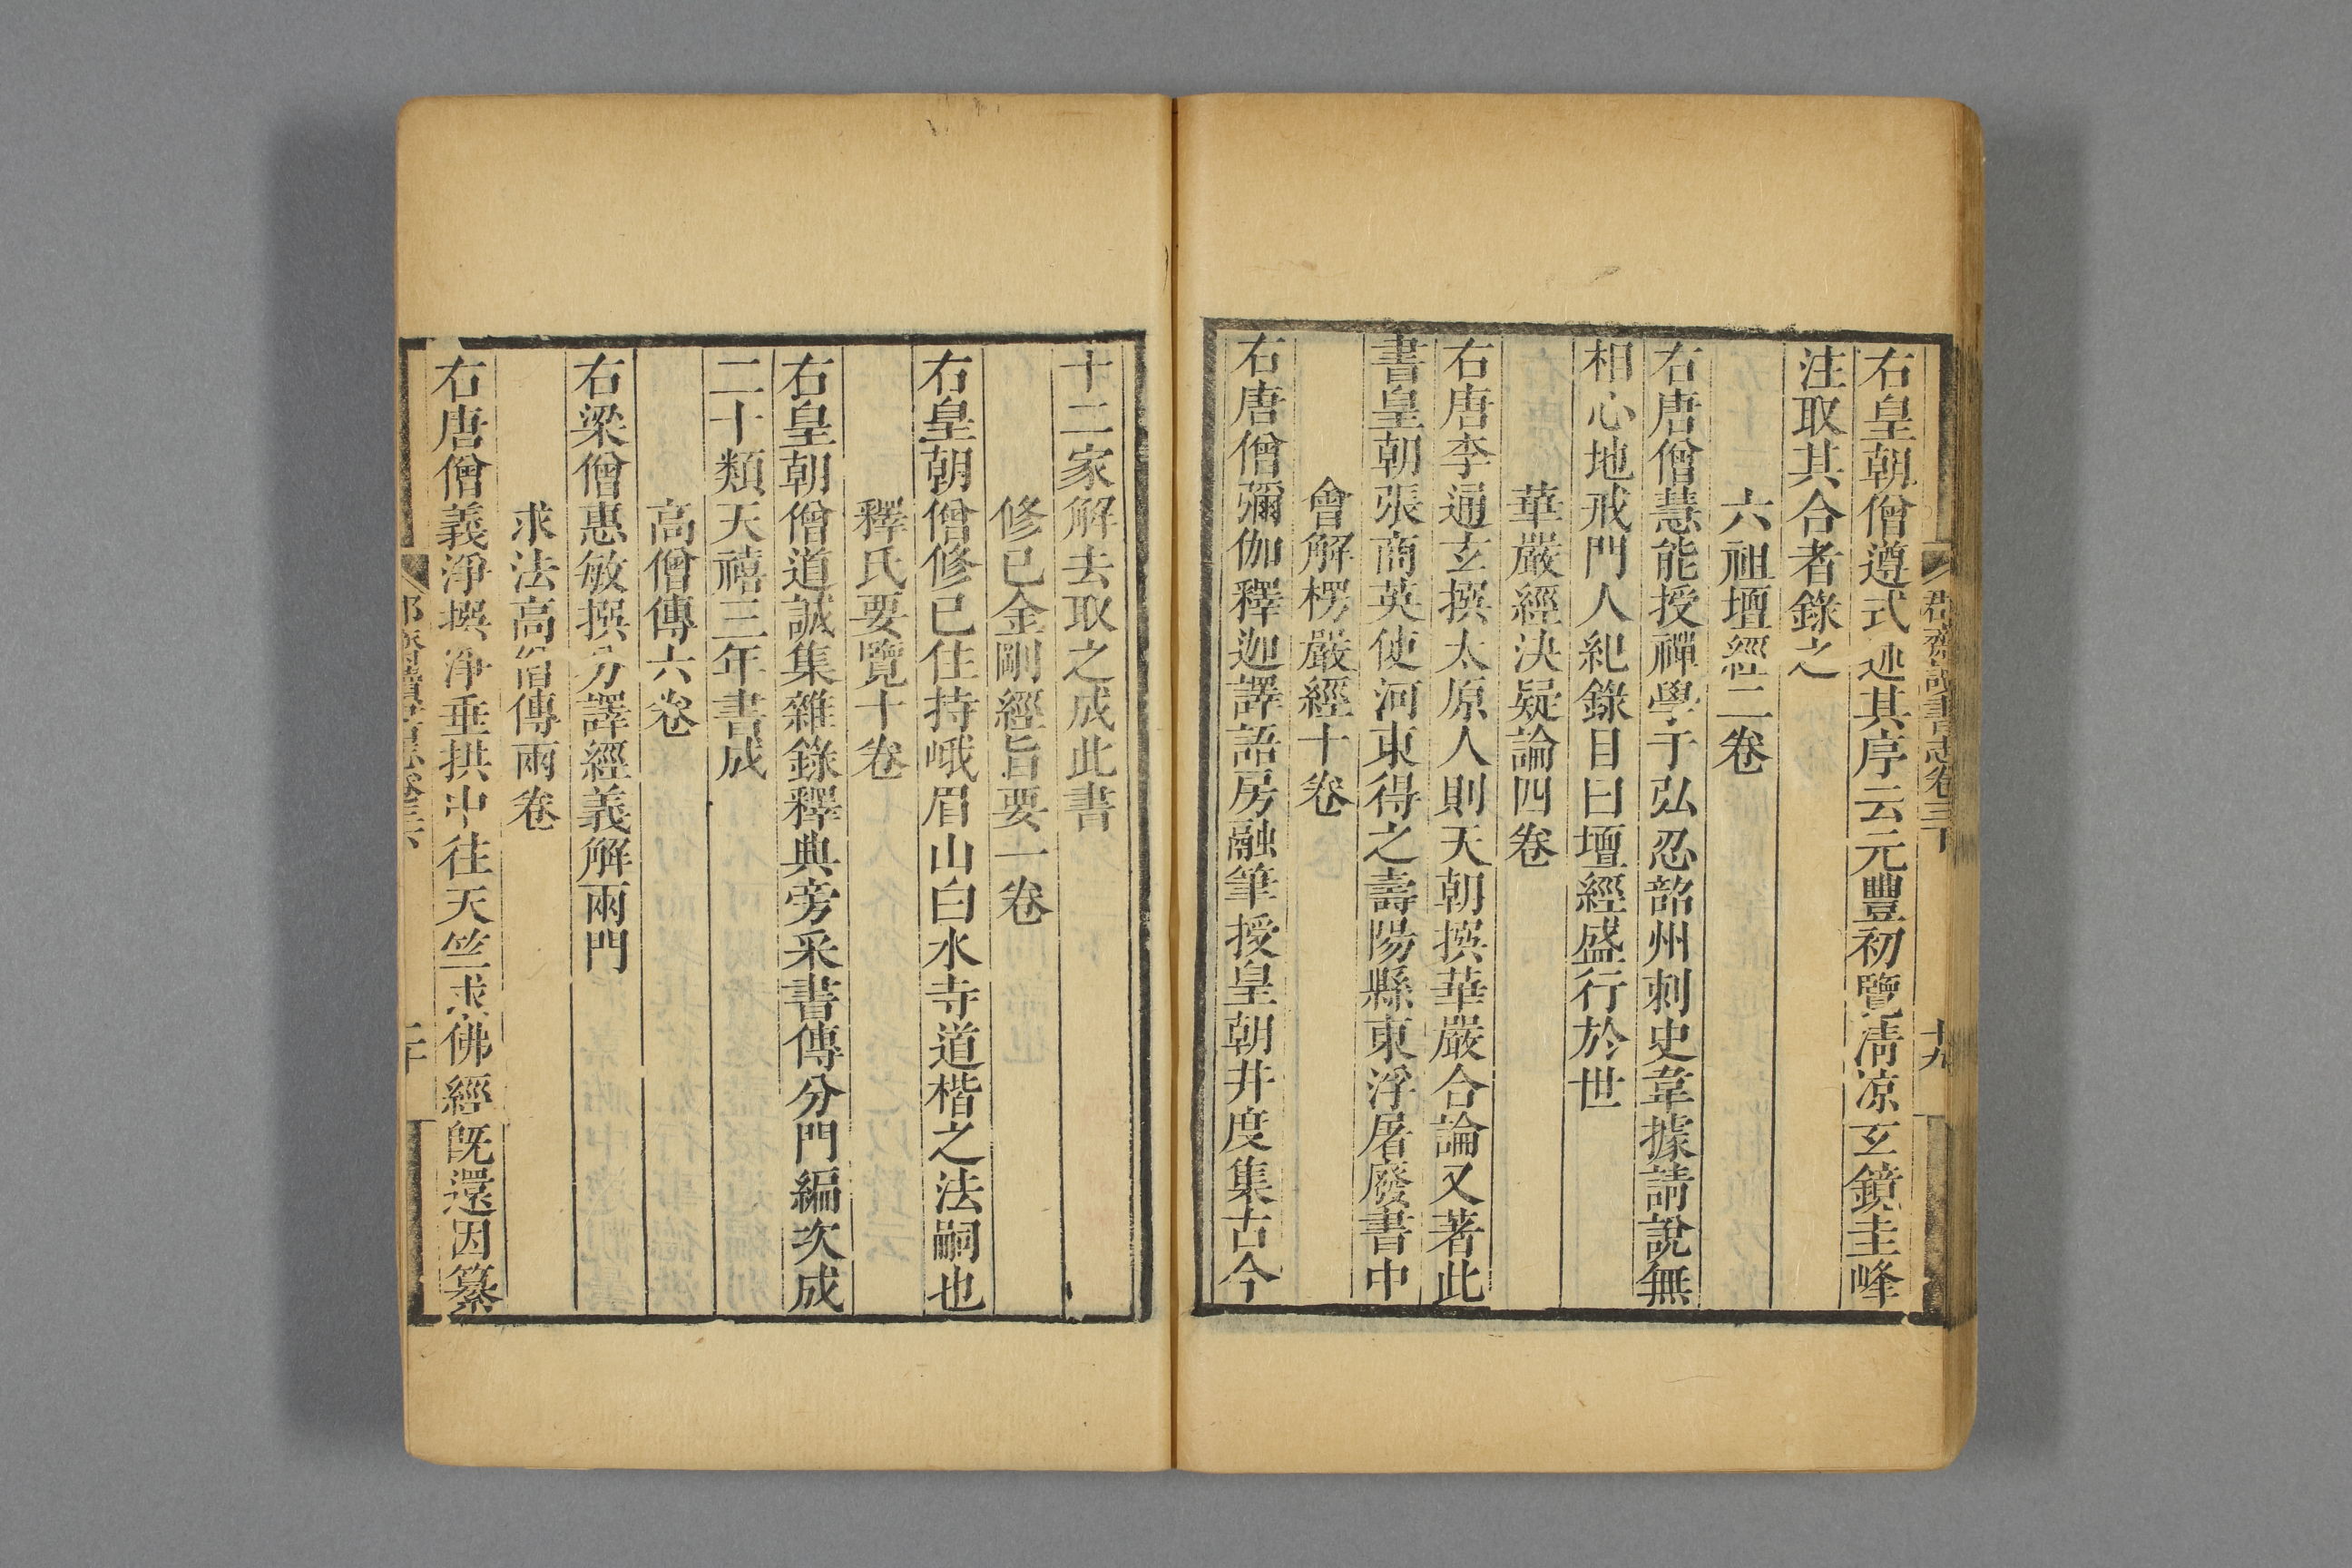 郡齋讀書志卷三下
十九
右皇朝僧遵式述其序云元豐初覽清凉玄鏡圭峰
注取其合者錄之
六祖壇經二卷
右唐僧慧能授禪學于弘忍韶州刺史韋據請說無
相心地戒門人紀錄目曰壇經盛行於世
華嚴經決疑論四卷
右唐李通玄撰太原人則天朝撰華嚴合論又著此
書皇朝張商英使河東得之壽陽縣東浮屠廢書中
會解楞嚴經十卷
右唐僧彌伽釋迦譯語房融筆授皇朝井度集古今
十二家解去取之成此書
修已金剛經旨要一卷
右皇朝僧修已住持峨眉山白水寺道楷之法嗣也
釋氏要覽十卷
右皇朝僧道誠集雜錄釋典旁采書傳分門編次成
二十類天禧三年書成
高僧傳六卷
右梁僧惠敏撰分譯經義解兩門
求法高僧傳兩卷
右唐僧義淨撰淨垂拱中往天竺求佛經旣還因纂